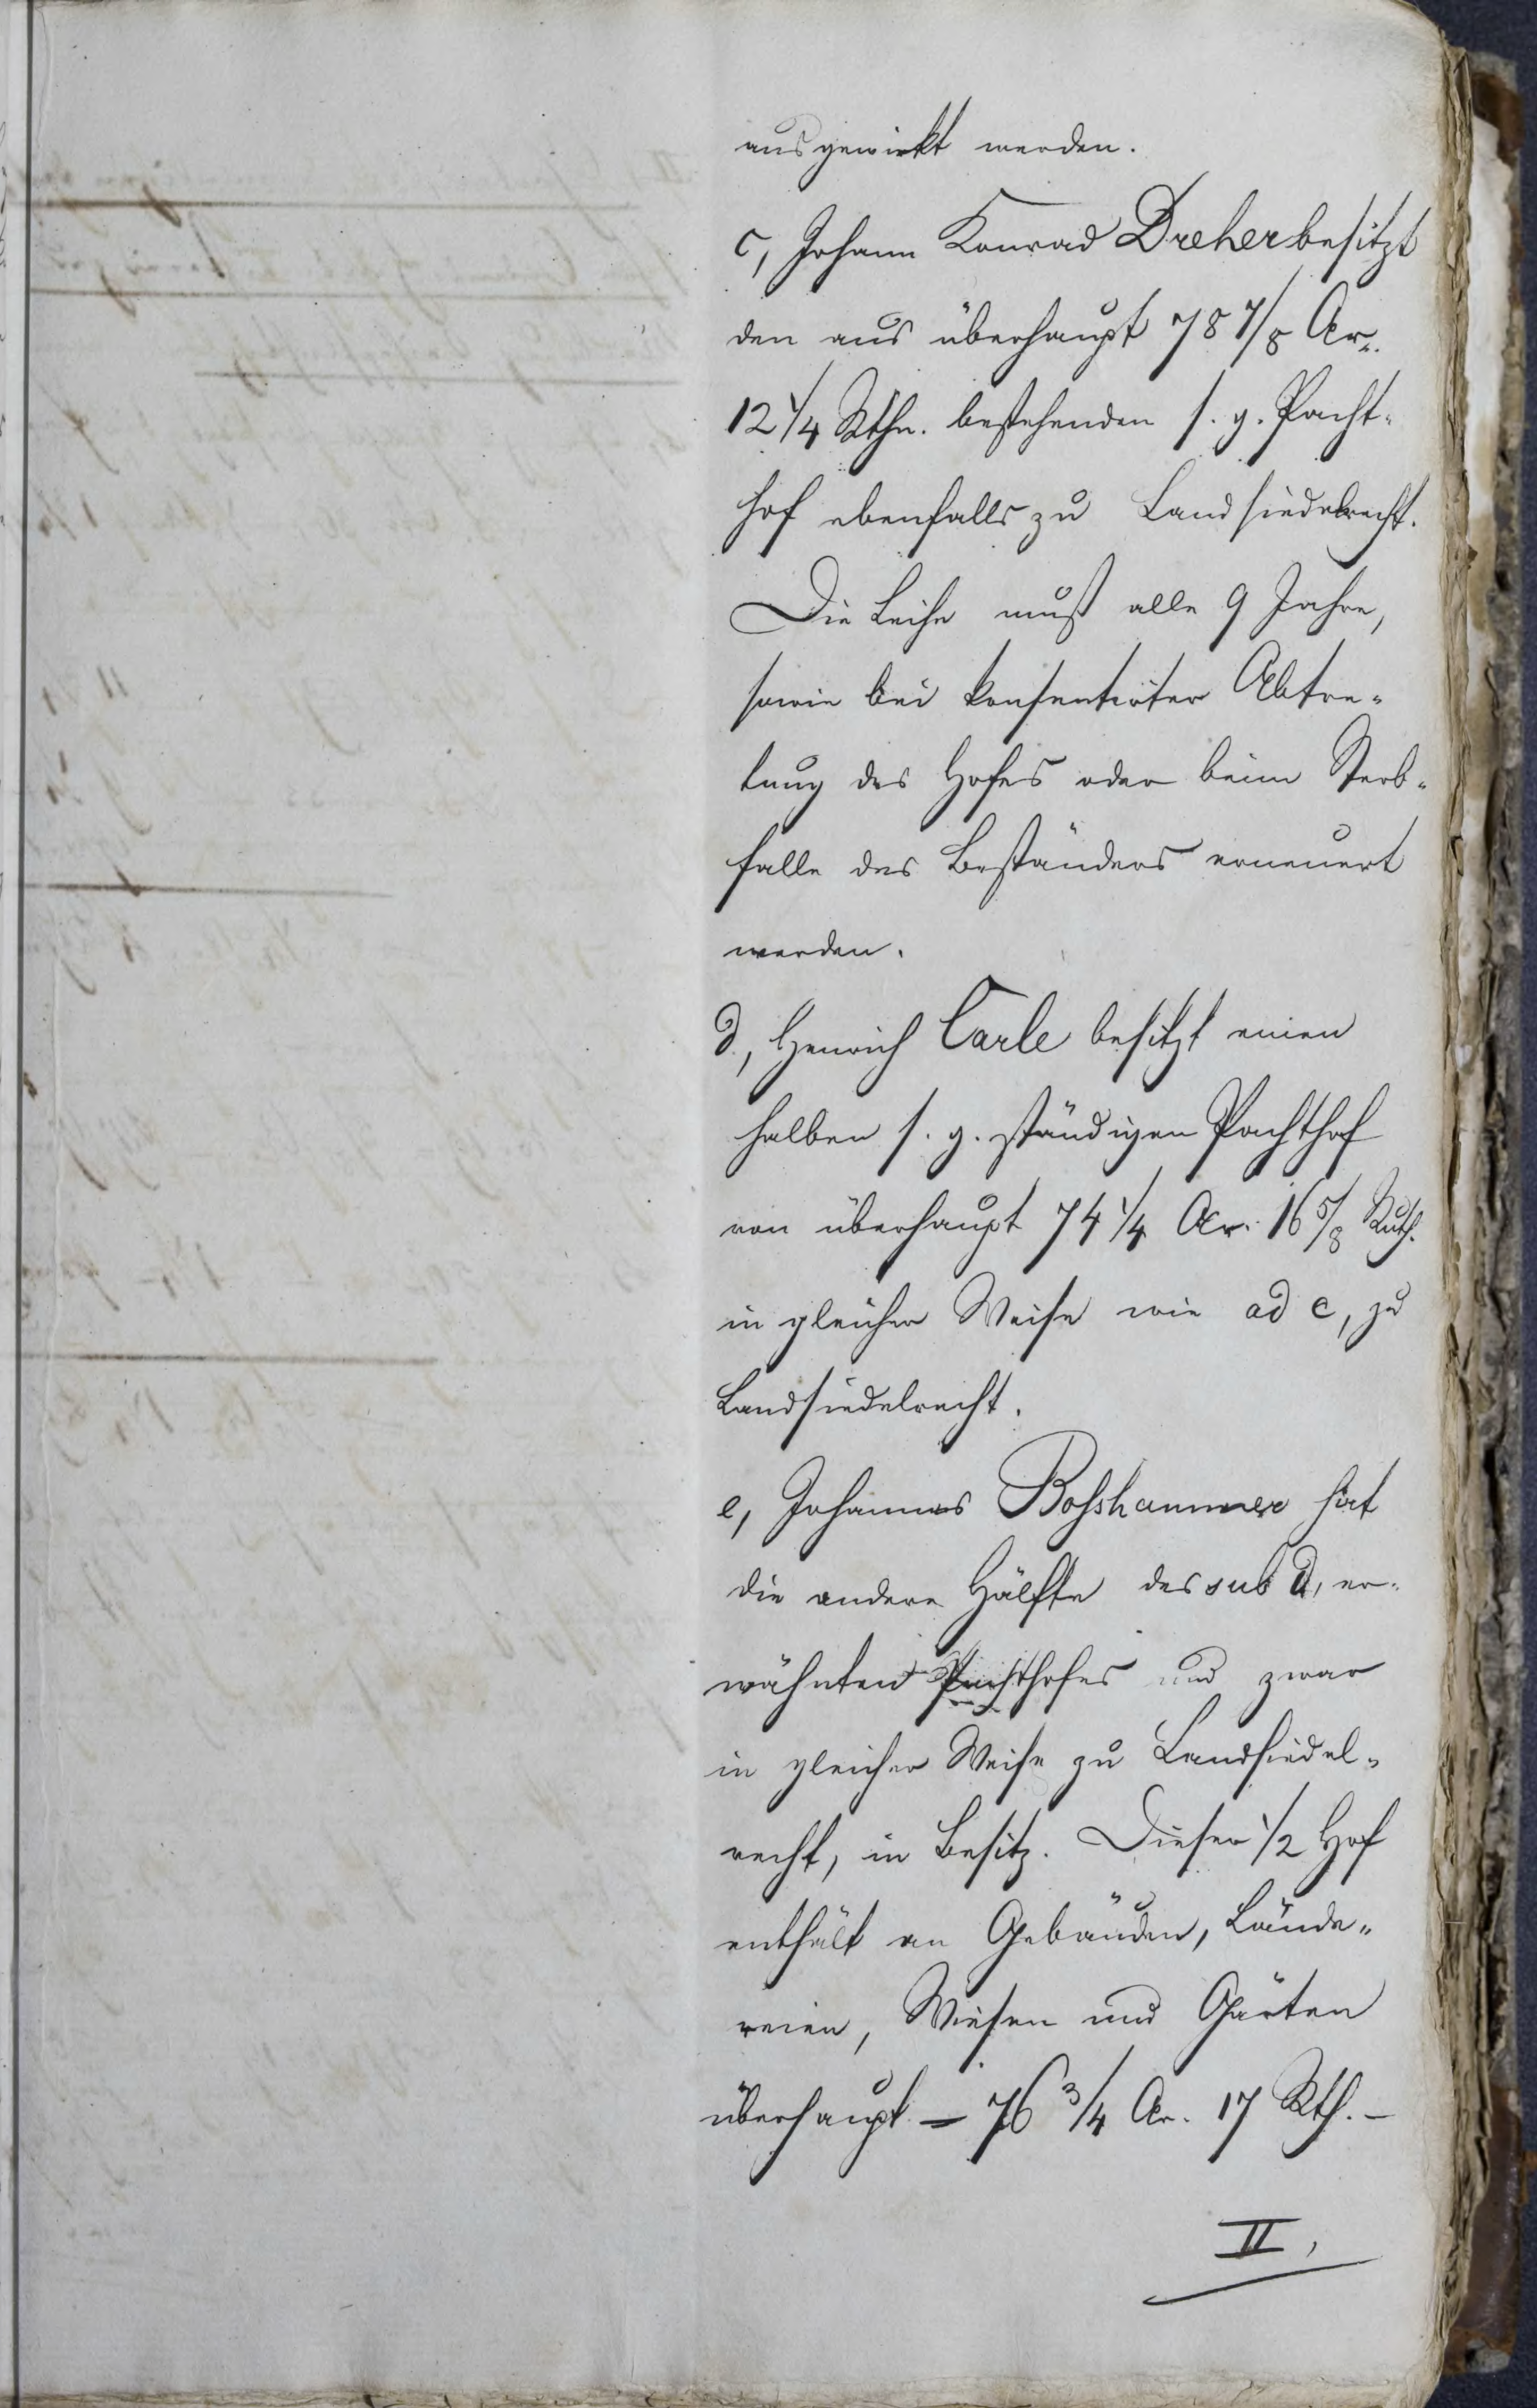 ausgewirkt werden.
c, Johann Konrad Dreher besitzt
den aus überhaupt 78 7/8 Ar.
12 1/4 Rthn. bestehenden s. g. Pacht-
hof ebenfalls zu Landsiedelrecht.
Die Leihe muß alle 9 Jahre,
sowie bei konsentirter Abtre-
tung des Hofes oder beim Sterb-
falle des Beständers erneuert
werden.
d, Henrich Carle besitzt einen
halben s. g. ständigen Pachthof
von überhaupt 74 1/4 Ar. 16 5/8 Ruth.
in gleicher Weise wie ad c, zu
Landsiedelrecht.
e, Johannes Boßhammer hat
die andere Hälfte des sub d, er-
wähnten Pachthofes und zwar
in gleicher Weise zu Landsiedel-
recht, in Besitz. Dieser 1/2 Hof
enthält an Gebäuden, Lände-
reien, Wiesen und Gärten
überhaupt = 76 3/4 Ar. 17 Rth. —
II,